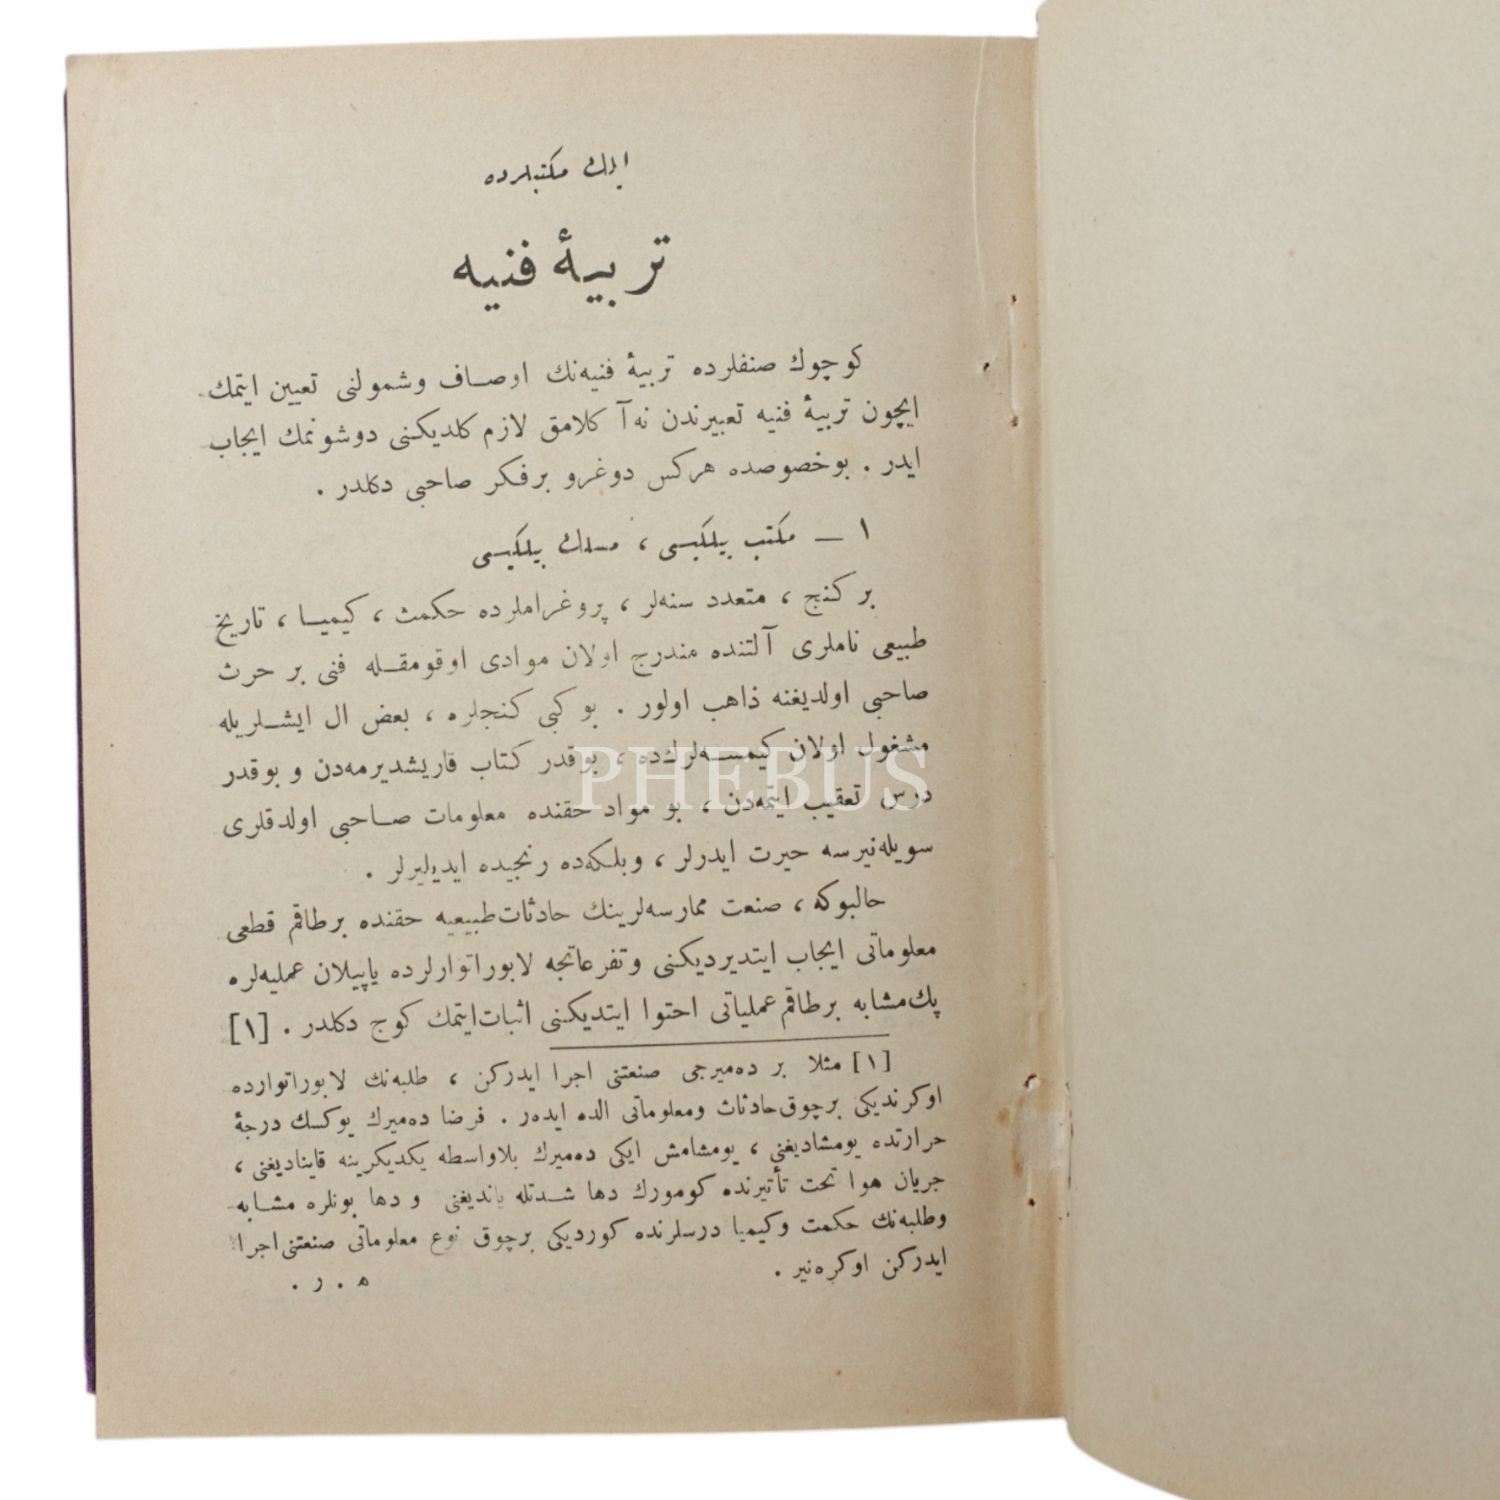 ايلك مكتبلرده
تربيهٔ فنيه
كوچوك صنفلرده تربيهٔ فنيه‌نك اوصاف وشمولنى تعيين ايتمك
ايچون تربيهٔ فنيه تعبيرندن نه‌آ كلامق لازم كلديكنى دوشونمك ايجاب
ايدر . بوخصوصده هركس دوغرو برفكر صاحبى دكلدر .
١ — مكتب بيلكيسى ، مسلك بيلكيسى
بر كنج ، متعدد سنه‌لر ، پروغراملرده حكمت ، كيميا ، تاريخ
طبيعى ناملرى آلتنده مندرج اولان موادى اوقومقله فنى بر حرث
صاحبى اولديغنه ذاهب اولور . بو كبى كنجلره ، بعض ال ايشلريله
مشغول اولان كيمسه‌لرك‌ده ، بوقدر كتاب قاريشديرمه‌دن و بوقدر
درس تعقيب ايتمه‌دن ، بو مواد حقنده معلومات صاحبى اولدقلرى
سويله‌نيرسه حيرت ايدرلر ، وبلكه‌ده رنجيده ايديليرلر .
حالبوكه ، صنعت ممارسه‌لرينك حادثات‌طبيعيه حقنده برطاقم قطعى
معلوماتى ايجاب ايتديرديكنى وتفرعاتجه لابوراتوارلرده ياپيلان عمليه‌لره
پك‌مشابه برطاقم‌عملياتى احتوا ايتديكنى اثبات‌ايتمك كوج دكلدر . [١]
[١] مثلا بر ده‌ميرجى صنعتنى اجرا ايدركن ، طلبه‌نك لابوراتوارده
اوكرنديكى برچوق‌حادثات ومعلوماتى الده ايده‌ر . فرضا ده‌ميرك يوكسك درجهٔ
حرارتده يومشاديغنى ، يومشامش ايكى ده‌ميرك بلاواسطه يكديكرينه قايناديغنى ،
جريان هوا تحت تأثيرنده كومورك دها شدتله يانديغنى و دها بونلره مشابه
وطلبه‌نك حكمت وكيميا درسلرنده كورديكى برچوق نوع معلوماتى صنعتنى‌اجرا
ايدركن اوكره‌نير .
ه . ر .
PHEBUS